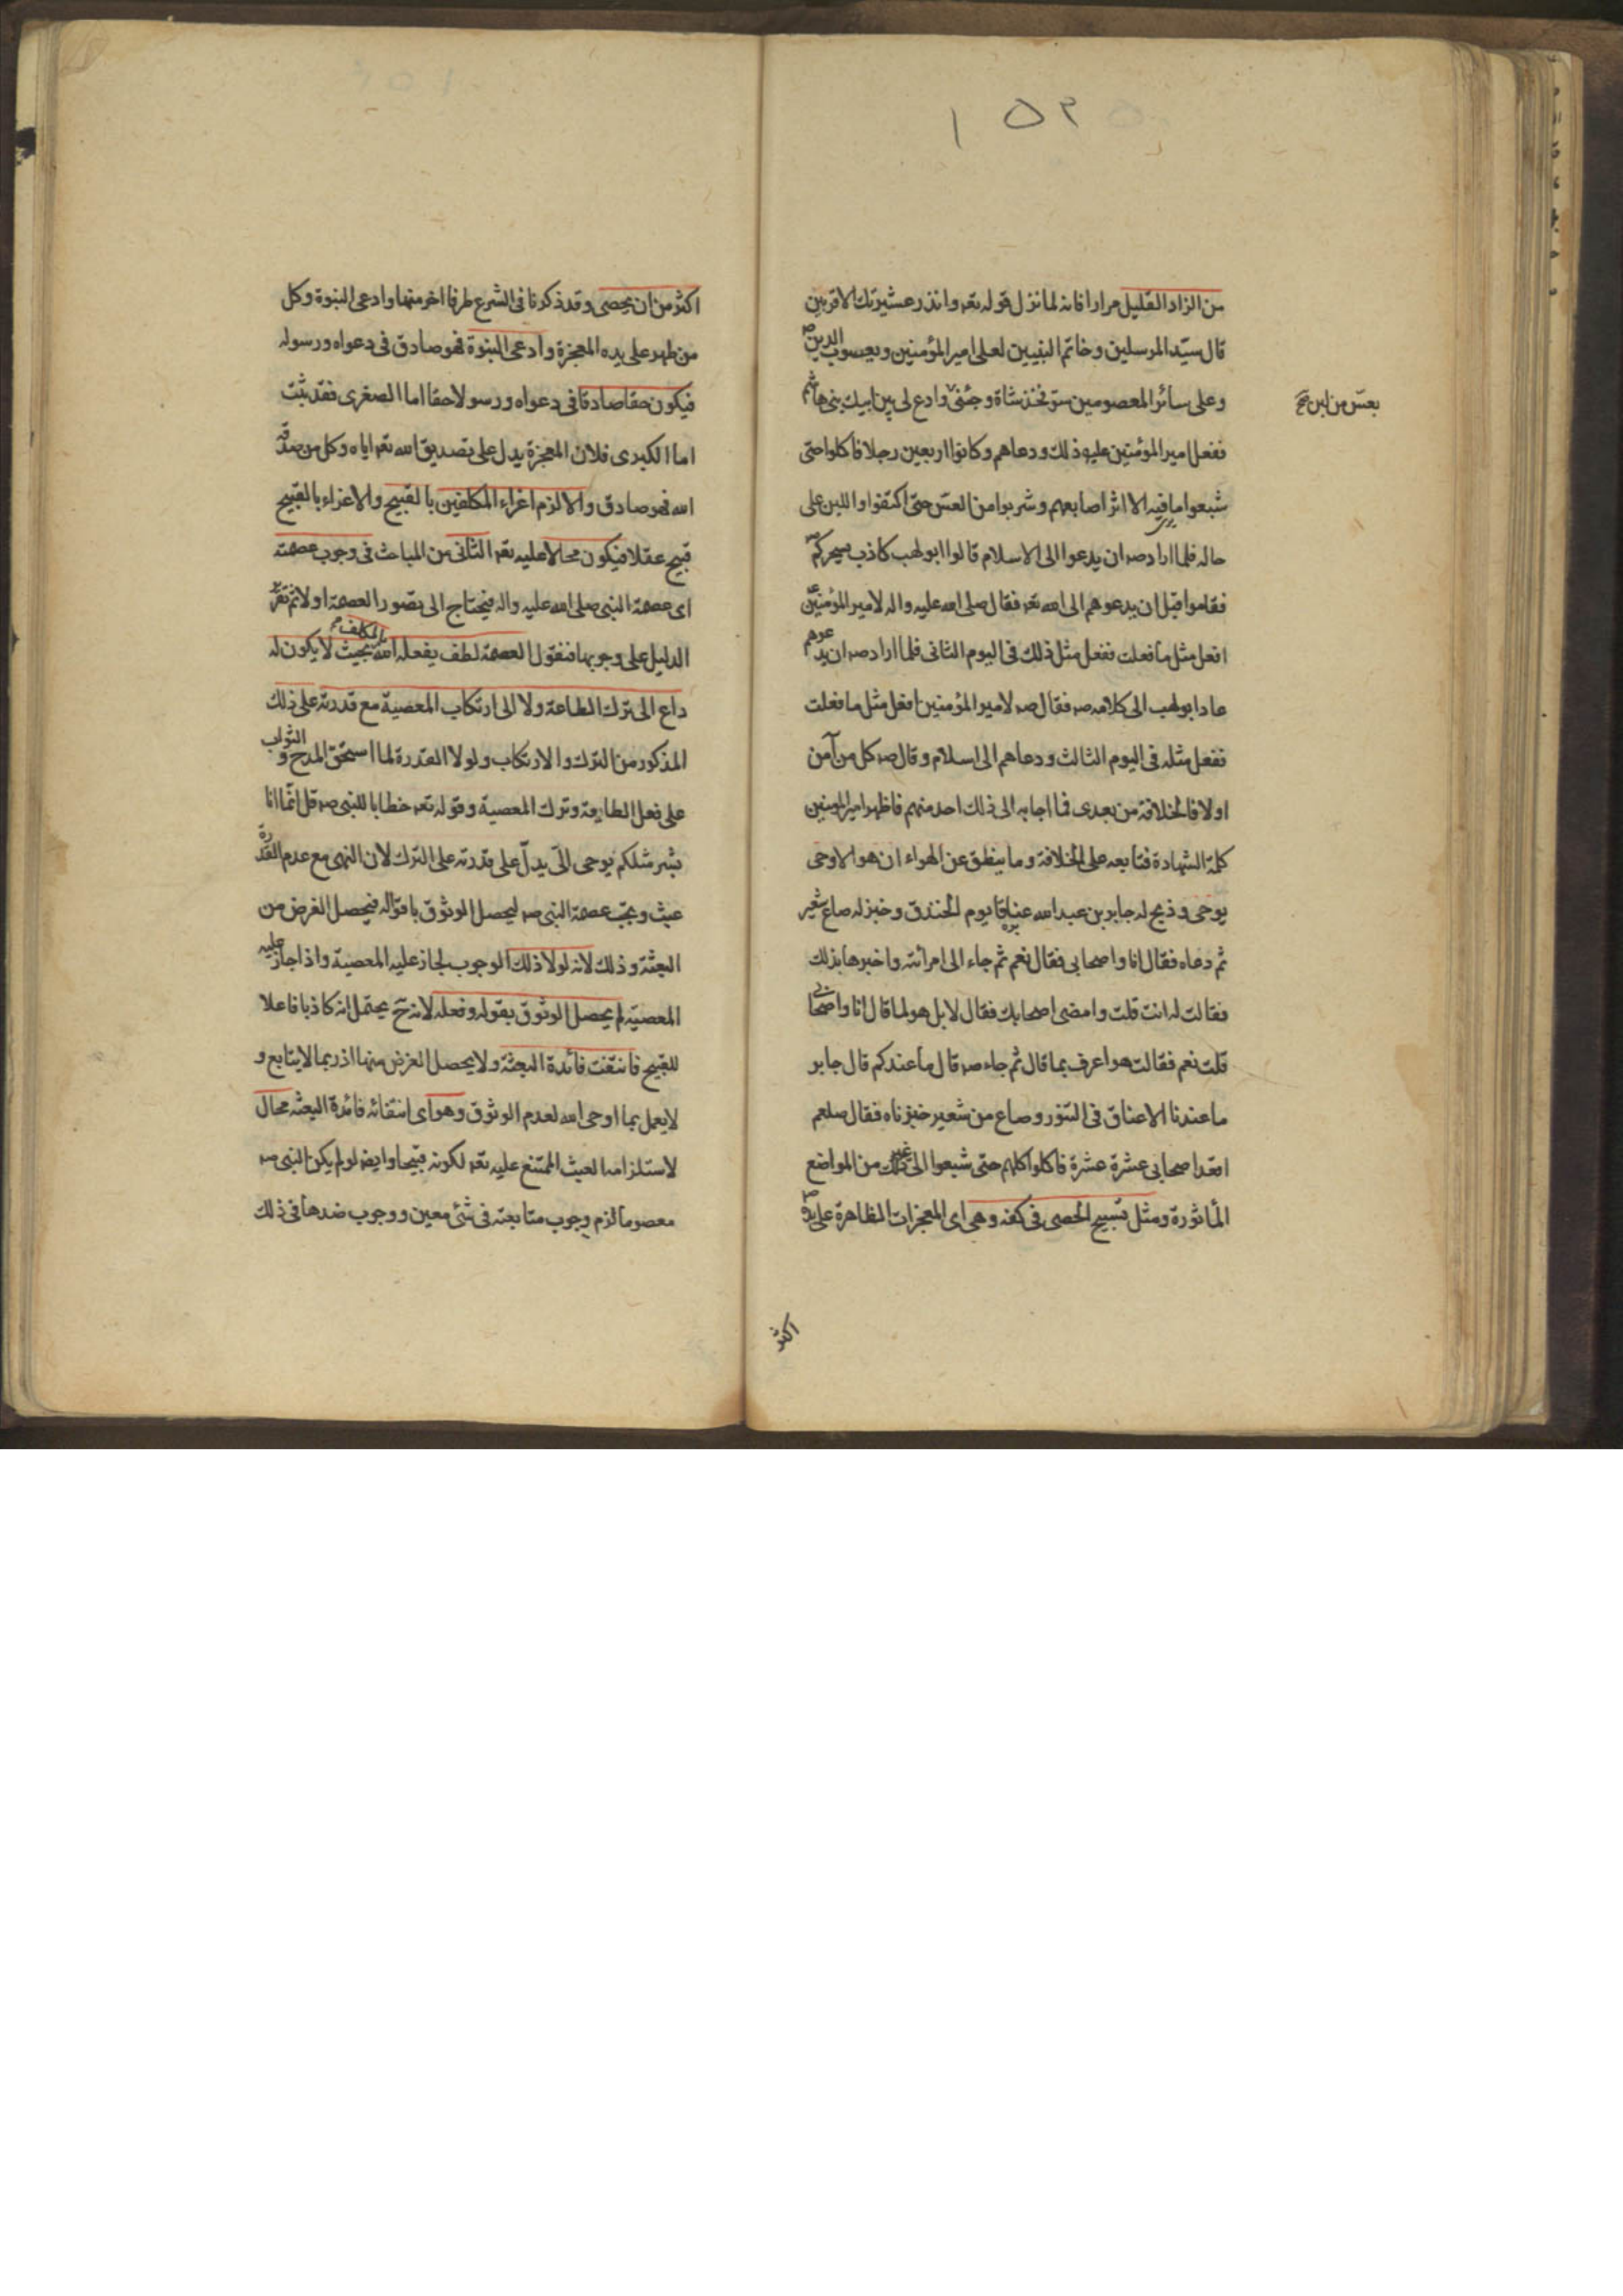 ١٥٣
من الزاد القليل مرارا فانه لما نزل قوله تعه وانذر عشيرتك الاقربين
قال سيّد المرسلين وخاتم النبيين لعلى امير المؤمنين ويعسوب الدين
وعلى سائر المعصومين شاة وجئنى وادع لى بنى ابيك بنى هاشم
بعسّ من لبن صح
ففعل امير المؤمنين عليه ذلك ودعاهم وكانوا اربعين رجلا فاكلوا حتى
شبعوا ما يرى فيه الا اثر اصابعهم وشربوا من العسّ حتى اكتفوا واللبن على
حاله فلما اراد صه ان يدعوا الى الاسلام قالوا ابو لهب كاذب سحركم
فقاموا قبل ان يدعوهم الى الله تعه فقال صلى الله عليه واله لامير المؤمنين
افعل مثل ما فعلت ففعل مثل ذلك فى اليوم الثانى فلما اراد صه ان يدعوهم
عاد ابو لهب الى كلامه صه فقال صه لامير المؤمنين افعل مثل ما فعلت
ففعل مثله فى اليوم الثالث ودعاهم الى اسلام وقال صه كل من آمن
اولا فالخلافة من بعدى فما اجابه الى ذلك احد منهم فاظهر امير المومنين
كلمة الشهادة فتابعه على الخلافة وما ينطق عن الهواء ان هو الا وحى
يوحى وذبح له جابر بن عبد الله عناقا يوم الخندق وخبز له صاع شعير
ثم دعاه فقال انا واصحابى فقال نعم ثم جاء الى امرأته واخبرها بذلك
فقالت له انت قلت وامضى اصحابك فقال لا بل هو لما قال انا واصحابى
قلت نعم فقالت هو اعرف بما قال ثم جاء صه قال ما عندكم قال جابر
ما عندنا الا عناق فى التنور وصاع من شعير خبزناه فقال صلعم
اقعد اصحابى عشرة عشرة فاكلوا كلهم حتى شبعوا الى غير ذلك من المواضع
المأثورة ومثل تسبيح الحصى فى كفه وهى اى المعجزات الظاهرة على يده
اكثر
اكثر من ان يحصى وقد ذكرنا فى الشرع طرفا اخر منها وادعى النبوة وكل
من ظهر على يده المعجزة وادعى النبوة فهو صادق فى دعواه ورسوله
فيكون حقا صادقا فى دعواه ورسولا حقا اما الصغرى فقد ثبت
اما الكبرى فلان المعجزة يدل على تصديق الله تعه اياه وكل من صدقه
الله فهو صادق والا لزم اغراء المكلفين بالقبيح والاغراء بالقبيح
قبيح عقلا فيكون محالا عليه تعه الثانى من المباحث فى وجوب عصمته
اى عصمة النبى صلى الله عليه واله فيحتاج الى تصور العصمة اولا ثم تقرّر
الدليل على وجوبها فنقول العصمة لطف يفعله الله بالمكلف بحيث لا يكون له
داع الى ترك الطاعة ولا الى ارتكاب المعصية مع قدرته على ذلك
المذكور من الترك والارتكاب ولولا القدرة لما استحق المدح والثواب
على فعل الطاعة وترك المعصية وقوله تعه خطابا للنبى صه قل انّما انا
بشر مثلكم يوحى الىّ يدلّ على قدرته على الترك لان النهى مع عدم القدرة
عبث ويجب عصمة النبى صه ليحصل الوثوق باقواله فيحصل الغرض من
البعثة وذلك لانه لولا ذلك الوجوب لجاز عليه المعصية واذا جاز عليه
المعصيّة لم يحصل الوثوق بقوله وفعله لانه ح يحتمل انه كاذبا فاعلا
للقبيح فانتفت فائدة البعثة ولا يحصل الغرض منها اذ ربما لا يتابع و
لا يعمل بما اوحى الله لعدم الوثوق وهو اى انتفائه فائدة البعثه محال
لاستلزامه العبث الممتنع عليه تعه لكونه قبيحا وايضه لو لم يكن النبى صه
معصوما لزم وجوب متابعته فى شئ معين ووجوب ضدها فى ذلك